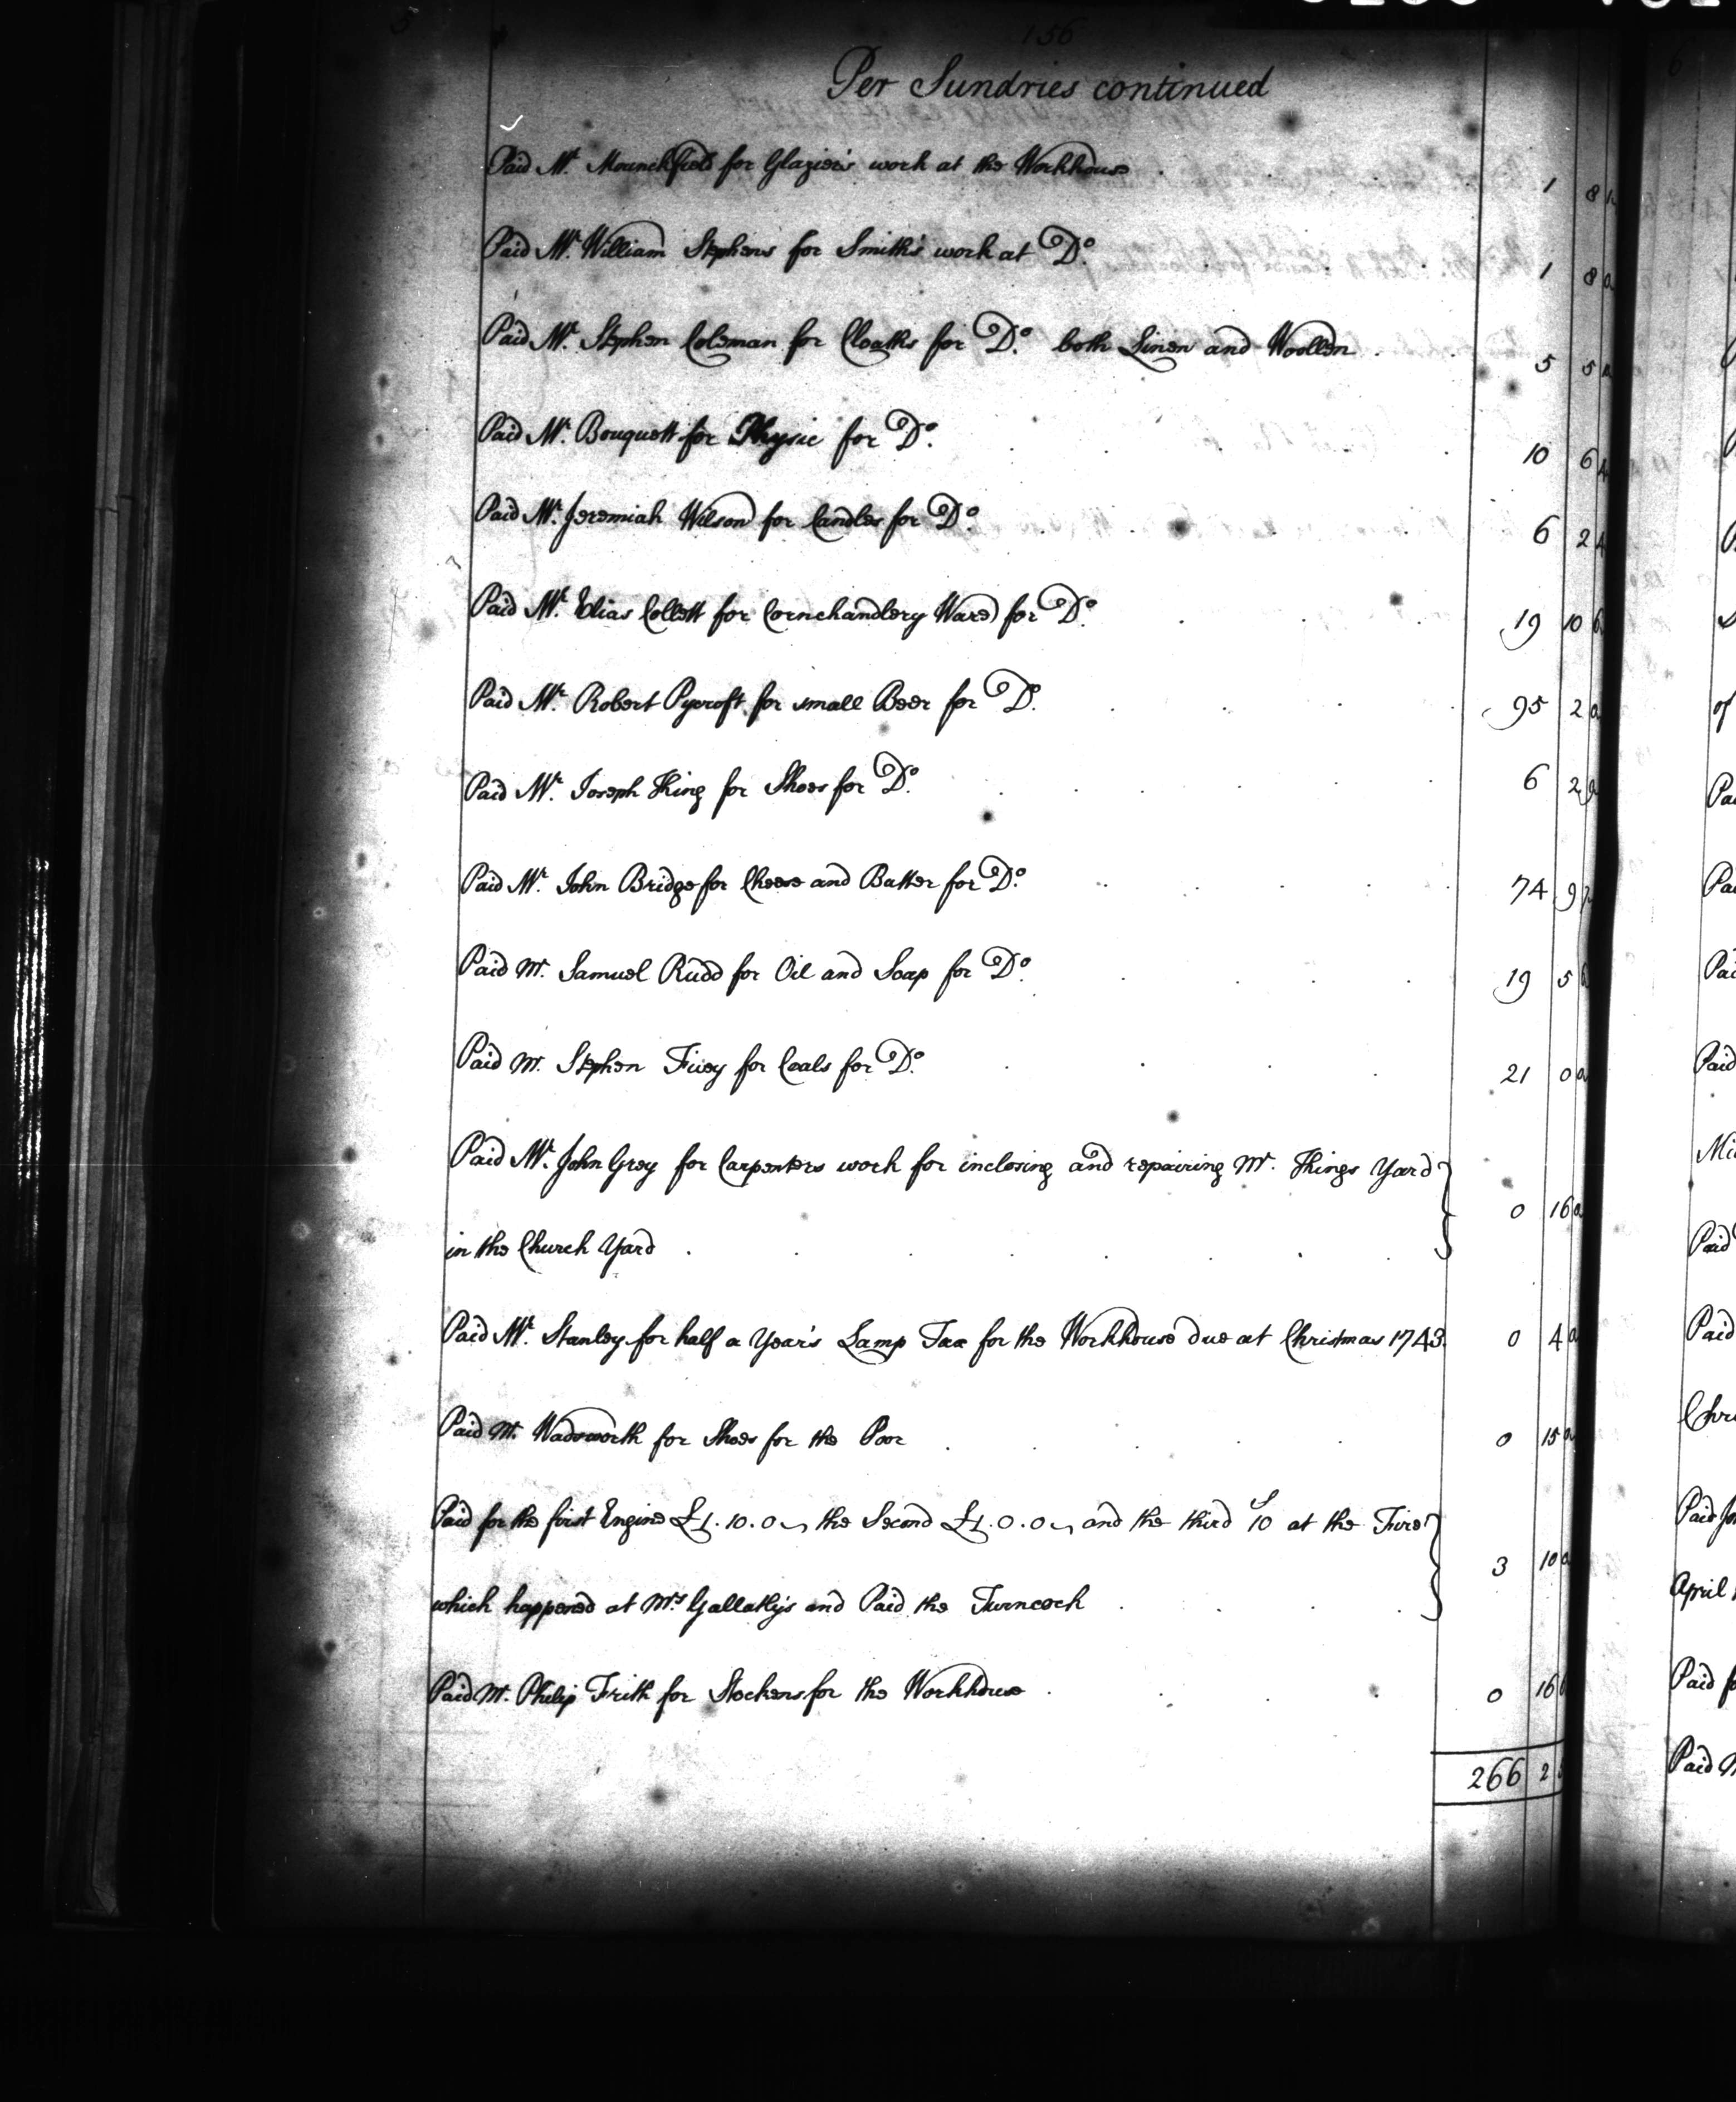 156
Per Sundries continued
Paid Mr. Mounckfield for Glazier's work at the Workhouse 1 8
Paid Mr. William Stephens for Smith's work at Do. 1 8
Paid Mr. Stephen Coleman for Cloaths for Do. both Linen and Woollen 5 5
Paid Mr. Bouquett for Physic for Do. 10 6
Paid Mr. Jeremiah Wilson for Candles for Do. 6 2
Paid Mr. Elias Collett for Cornchandlery Ware for Do. 19 10
Paid Mr. Robert Pycroft for small Beer for Do. 95 2
Paid Mr. Joseph King for Shoes for Do. 6 2
Paid Mr. John Bridge for Cheese and Butter for Do. 74 9
Paid Mr. Samuel Rudd for Oil and Soap for Do. 19 5
Paid Mr. Stephen for Coals for Do. 21 0
Paid Mr. John Grey for Carpenters work for inclosing and repairing Mr. Kings Yard
in the Church Yard 0 16
Paid Mr. Stanley for half a Year's Lamp Tax for the Workhouse due at Christmas 1743. 0 4
Paid Mr. Wadsworth for Shoes for the Poor 0 15
Paid for the first Engine £1.10.0 the Second £1.0.0 and the third S10 at the Fire
which happened at Mrs Gallatly's and Paid the Turncock 3 10
Paid Mr. Philip Frith for Stockens for the Workhouse 0 16
266 2